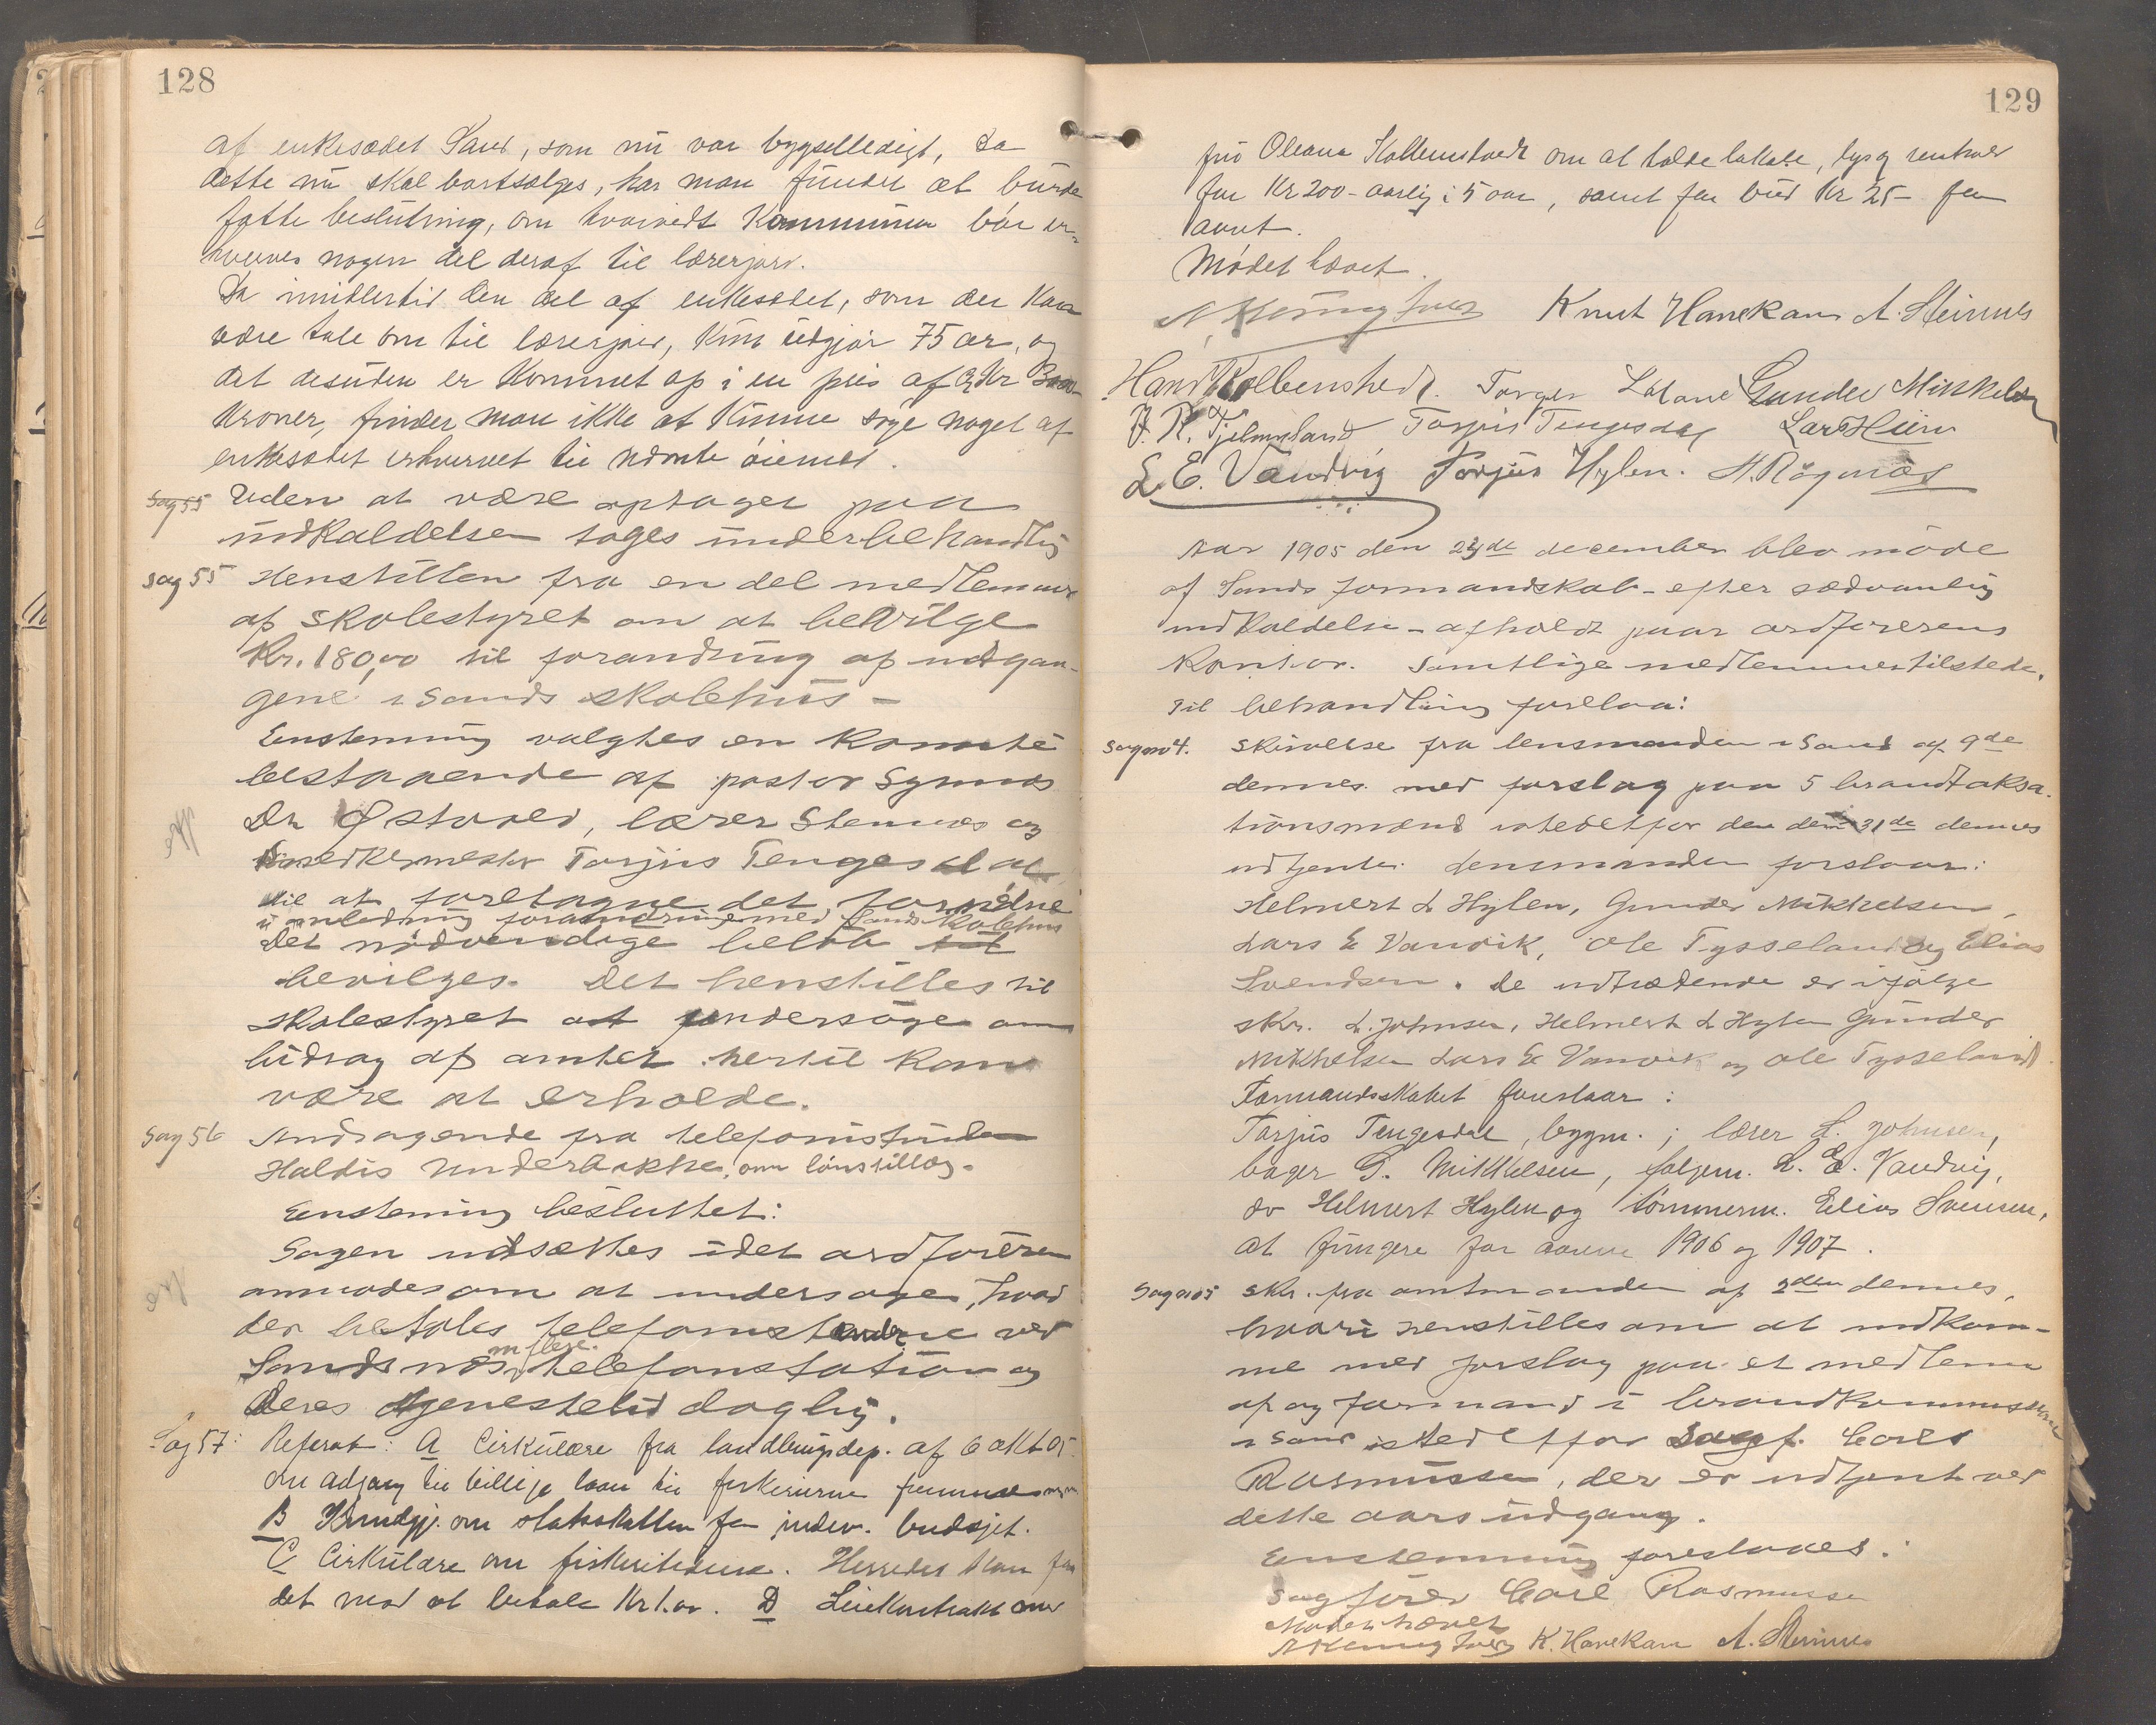 128
af enkesædet Sand, som nu var bygselledigt, da
dette nu skal bortsælges, har man fundet at burde
fatte beslutning, om hvorvidt Kommunen bør er-
hverves nogen del deraf til lærerjord.
Da imidlertid den del af enkesædet, som der Kan
være tale om til lærerjord, Kun udgjør 75 ar, og
det desuden er Kommet op i en pris af
Kroner, finder man ikke at Kunne søge noget af
enkesædet erhvervet til nævnte øiemed.
Sag 55 Uden at være optaget paa
indkaldelsen toges under behandling
Sag 55 Henstillen fra en del medlemmer
af skolestyret om at bevilge
Kr. 180,00 til forandring af udgan-
gene i Sands skolehus -
Enstemmig valgtes en Komite
bestaaende af pastor Synnes
Dr Østvold, lærer Stennes og
snedkermester Torjus Tengesdal
til at foretagne det fornødne
i anledning forandringe med Sands skolehus
Det nødvendige beløb
bevilges. Det henstilles til
skolestyret at undersøge om
bidrag af amtet hertil kan
være at erholde.
Sag 56 Andragende fra telefonistinden
Haldis Underbakke, om lønstillæg.
Enstemmig besluttet:
Sagen udsættes idet ordføreren
anmodes om at undersøge, hvad
der betales telefonistinderne ved
Sandsnæs m flere telefonstation og
deres tjenestetid daglig.
Sag 57: Referat: A Cirkulære fra landbrugsdep. af 6 okt 05
om adgang til billige laan til fiskeriernes fremme
B Kundgj. om statsskatten for indev. budsjet.
C Cirkulære om fiskeritidende. Herredet kan faa
det mod at betale Kr 1.00. D Leiekontrakt med
129
fru Oleana Kolbenstvedt om at holde lokale, lys og renhold
for Kr 200 - aarlig i 5 aar, samt for bud Kr 25 - pr
aaret.
Mødet hævet.
Knut Hanekam A. Steinnes
Hans Kolbenstvedt. Torger Lalane Gunder Mikkelsen
J. R. Fjelmsland Torjus Tengesdal Lars Hiim
L. E. Vandvig Torjus Hylen. H. Røgnæs
Aar 1905 den 23de december blev møde
af Sands formandskab - efter sædvanlig
indkaldelse - afholdt paa ordførerens
Kontor. Samtlige medlemmer tilstede.
Til behandling forelaa:
Sag no 4. Skrivelse fra lensmanden i Sand af 9de
dennes med forslag paa 5 brandtaksa-
tionsmænd istedetfor den den 31de dennes
udtjente. Lensmanden forslaar:
Helmert L Hylen, Gunder Mikkelsen,
Lars E Vanvik, Ole Tysseland og Elias
Svendsen. De udtrædende er ifølge
skr. L. Johnsen, Helmert L Hylen Gunder
Mikkelsen Lars E Vanvik og Ole Tysseland
Formandsskabet foreslaar:
Torjus Tengesdal, bygm.; lærer L. Johnsen,
bager G. Mikkelsen, L. E. Vandvig,
do Helmert Hylen og tømmerm. Elias Svensen,
at fungere for aarene 1906 og 1907.
Sag no 5 Skr. fra amtmanden af 2den dennes,
hvori henstilles om at indkom-
me med forslag paa et medlem
af og formand i brandkommissionen
i Sand istedetfor sagf. Carl
Rasmussen, der er udtjent ved
dette aars udgang.
Enstemmig foreslaaes:
Sagfører Carl Rasmussen
Mødet hævet
K. Hanekam A. Steinnes